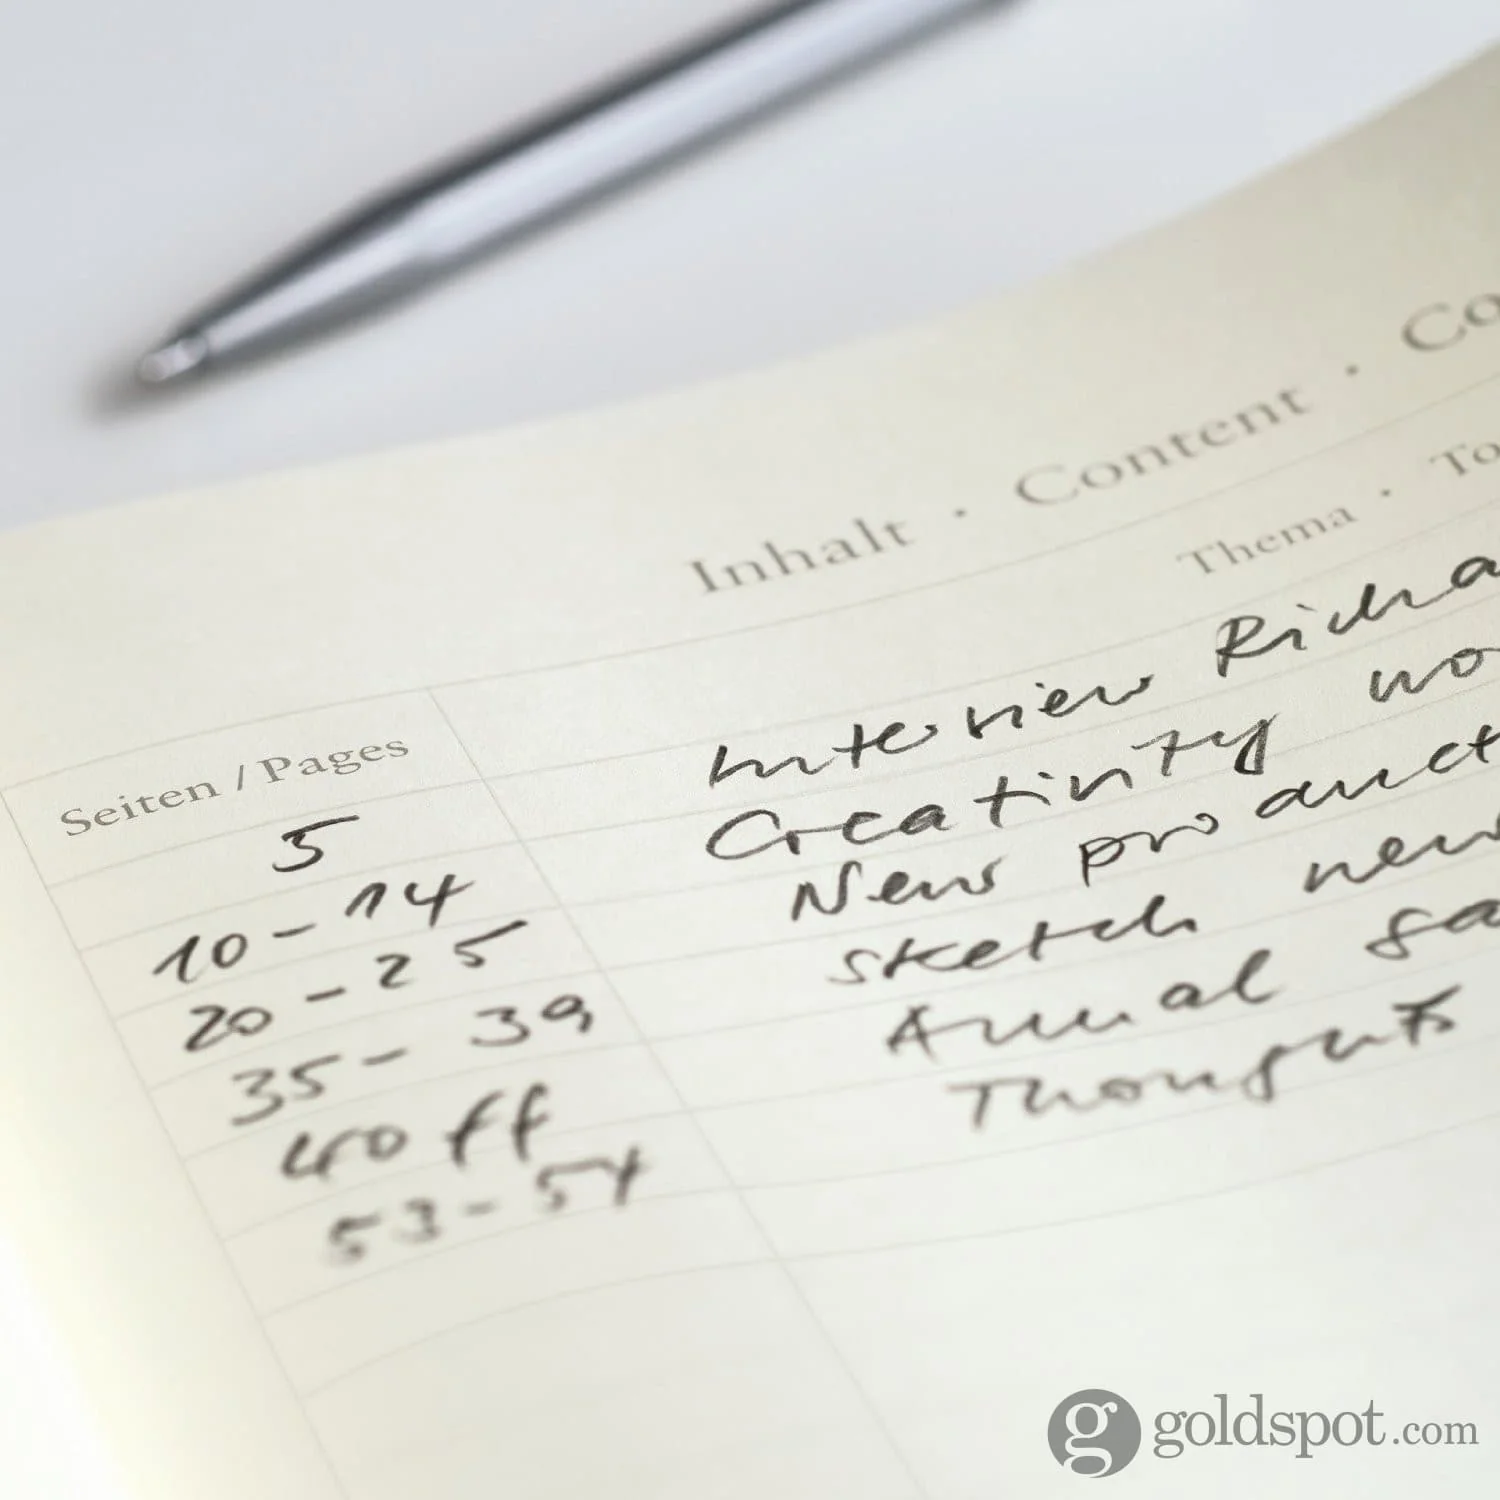 Inhalt · Content · Co
Thema · To
Seiten / Pages
5 Interview Richa
10 - 14 Creativity wo
20 - 25 New product
35 - 39 sketch new
40 ff Annual ga
53 - 54 Thoughts
goldspot.com